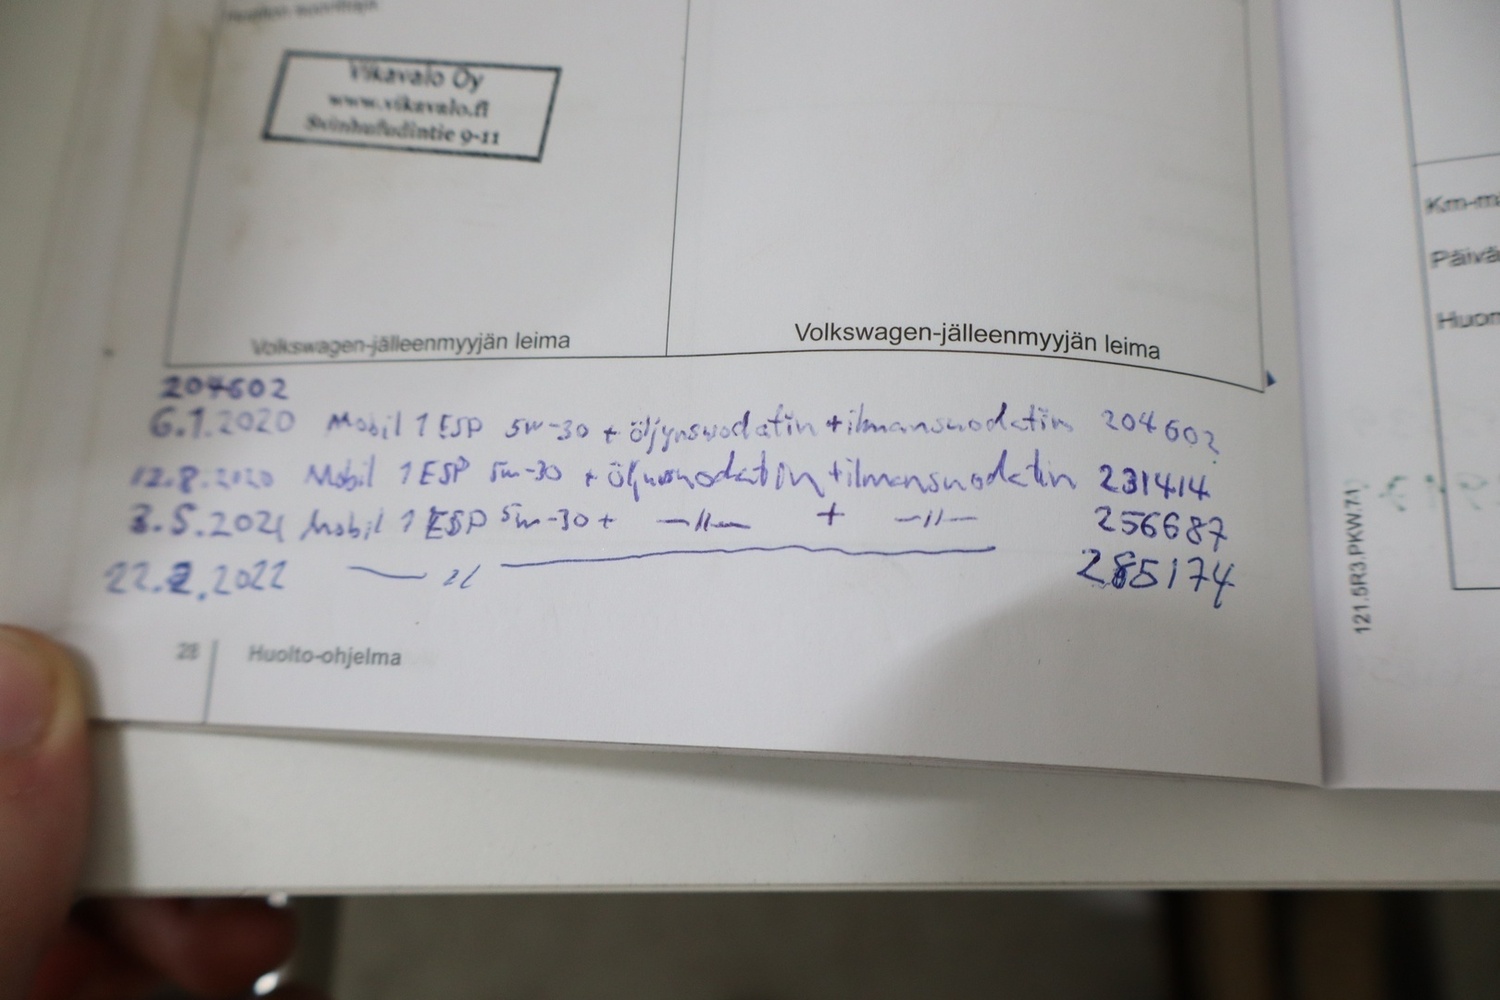 Vikavalo Oy
www.vikavalo.fi
Svinhufvudintie 9-11
Volkswagen-jälleenmyyjän leima
Volkswagen-jälleenmyyjän leima
204602
6.1.2020 Mobil 1 ESP 5W-30 + öljynsuodatin + ilmansuodatin 204602
12.8.2020 Mobil 1 ESP 5w-30 + öljynsuodatin + ilmansuodatin 231414
3.5.2021 Mobil 1 ESP 5w-30 + —//— + —//— 256687
22.2.2022 — // — 285174
28 Huolto-ohjelma
Km-m
Päivä
Huom
121.5R3.PKW.71